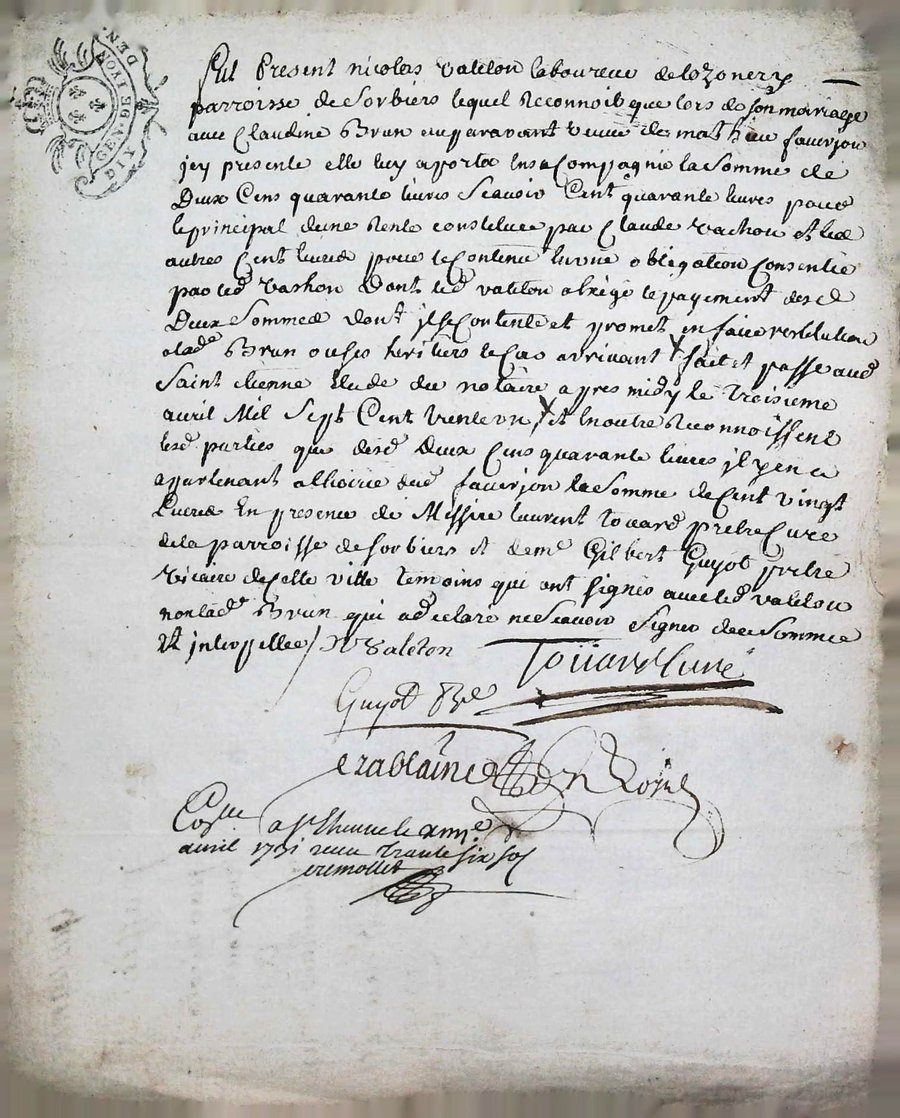 GEN. DE LYON. DEN.
DIX
Fut Present nicolas valeton laboureur de lozonery
parroisse de Sorbiers lequel Reconnoit que lors de son mariage
avec Claudine Brun auparavant veuve de mathieu faverjon
jcy presente elle luy aporta en sa Compagnie la Somme de
Deux Cens quarante livres Scavoir Cent quarante livres pour
le principal dune Rente constituee par Claude vachon et les
autres Cent livres pour le contenu en une obligation Consentie
par led vachon Dont led valeton a exigé le payement desd
Deux Sommes dont jl se Contente et promet en faire restitution
a lad Brun ou ses heritiers le Cas arrivant fait et passe aud
Saint etienne Etude du notaire apres midy le troisieme
avril Mil Sept Cent trente un, et en outre Reconnoissent
lesd parties que desd Deux Cens quarante livres jl y en a
appartenant a lhoirie dud faverjon la Somme de Cent vingt
Livres En presence de Messire laurent Touard prêtre Curé
de la parroisse de Sorbiers et de mre Gilbert Guyot prêtre
vicaire de Cette ville temoins qui ont signés avec led valeton
non lad Brun qui a declaré ne Scavoir Signer de ce Sommée
Et interpellée / N Valeton
Toüard Curé
Guyot
erablaine Royal
a St Etienne le
avril 1731 receu trante six sol
cremollet